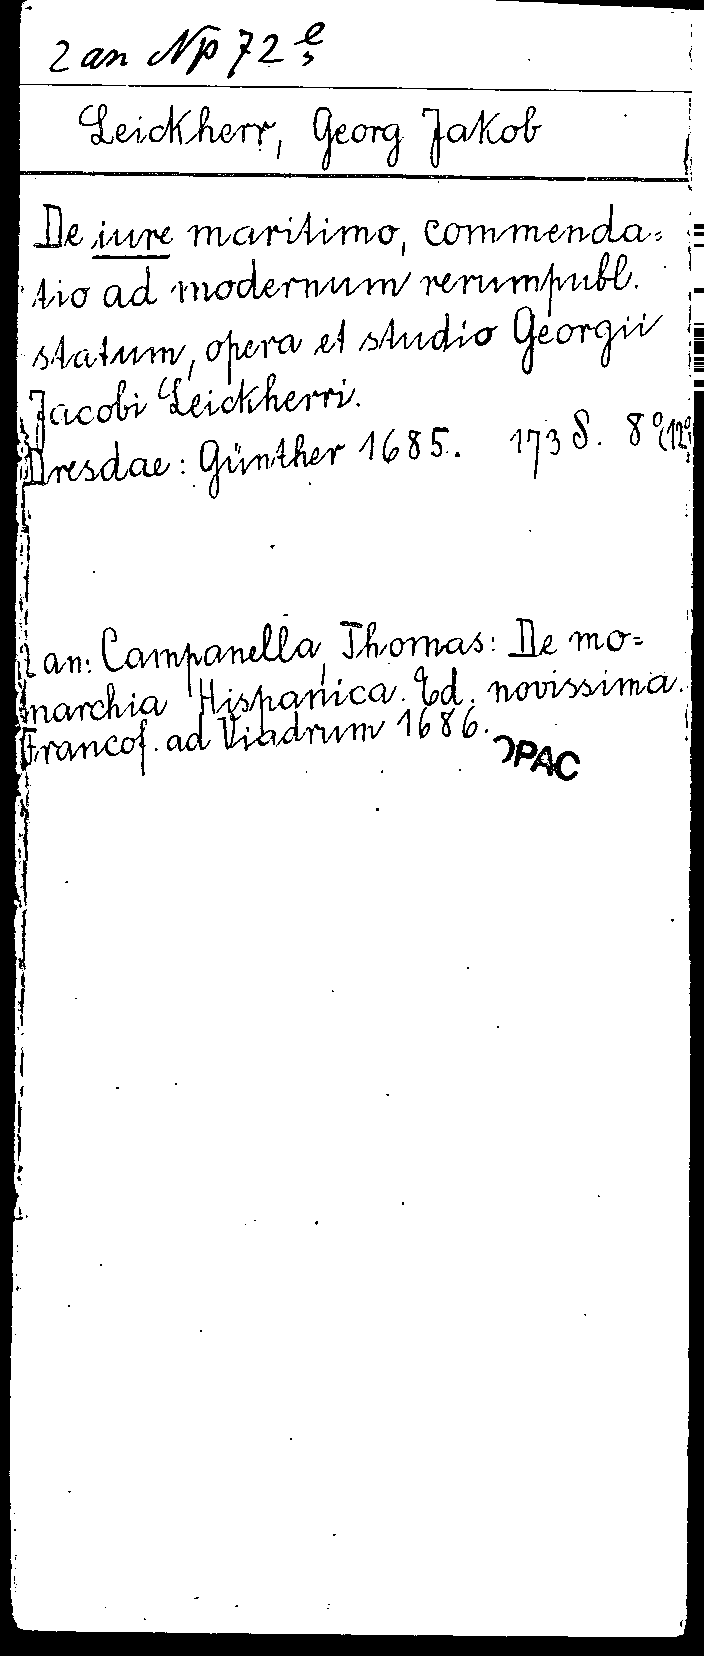 2 an Np 72 e/s
Leickherr, Georg Jakob
De iure maritimo, commenda=
tio ad modernum rerumpubl.
statum, opera et studio Georgii
Jacobi Leickherri.
Dresdae: Günther 1685. 173 S. 8°(12°
2 an: Campanella, Thomas: De mo=
narchia Hispanica. Ed. novissima.
Francof. ad Viadrum 1686.
OPAC